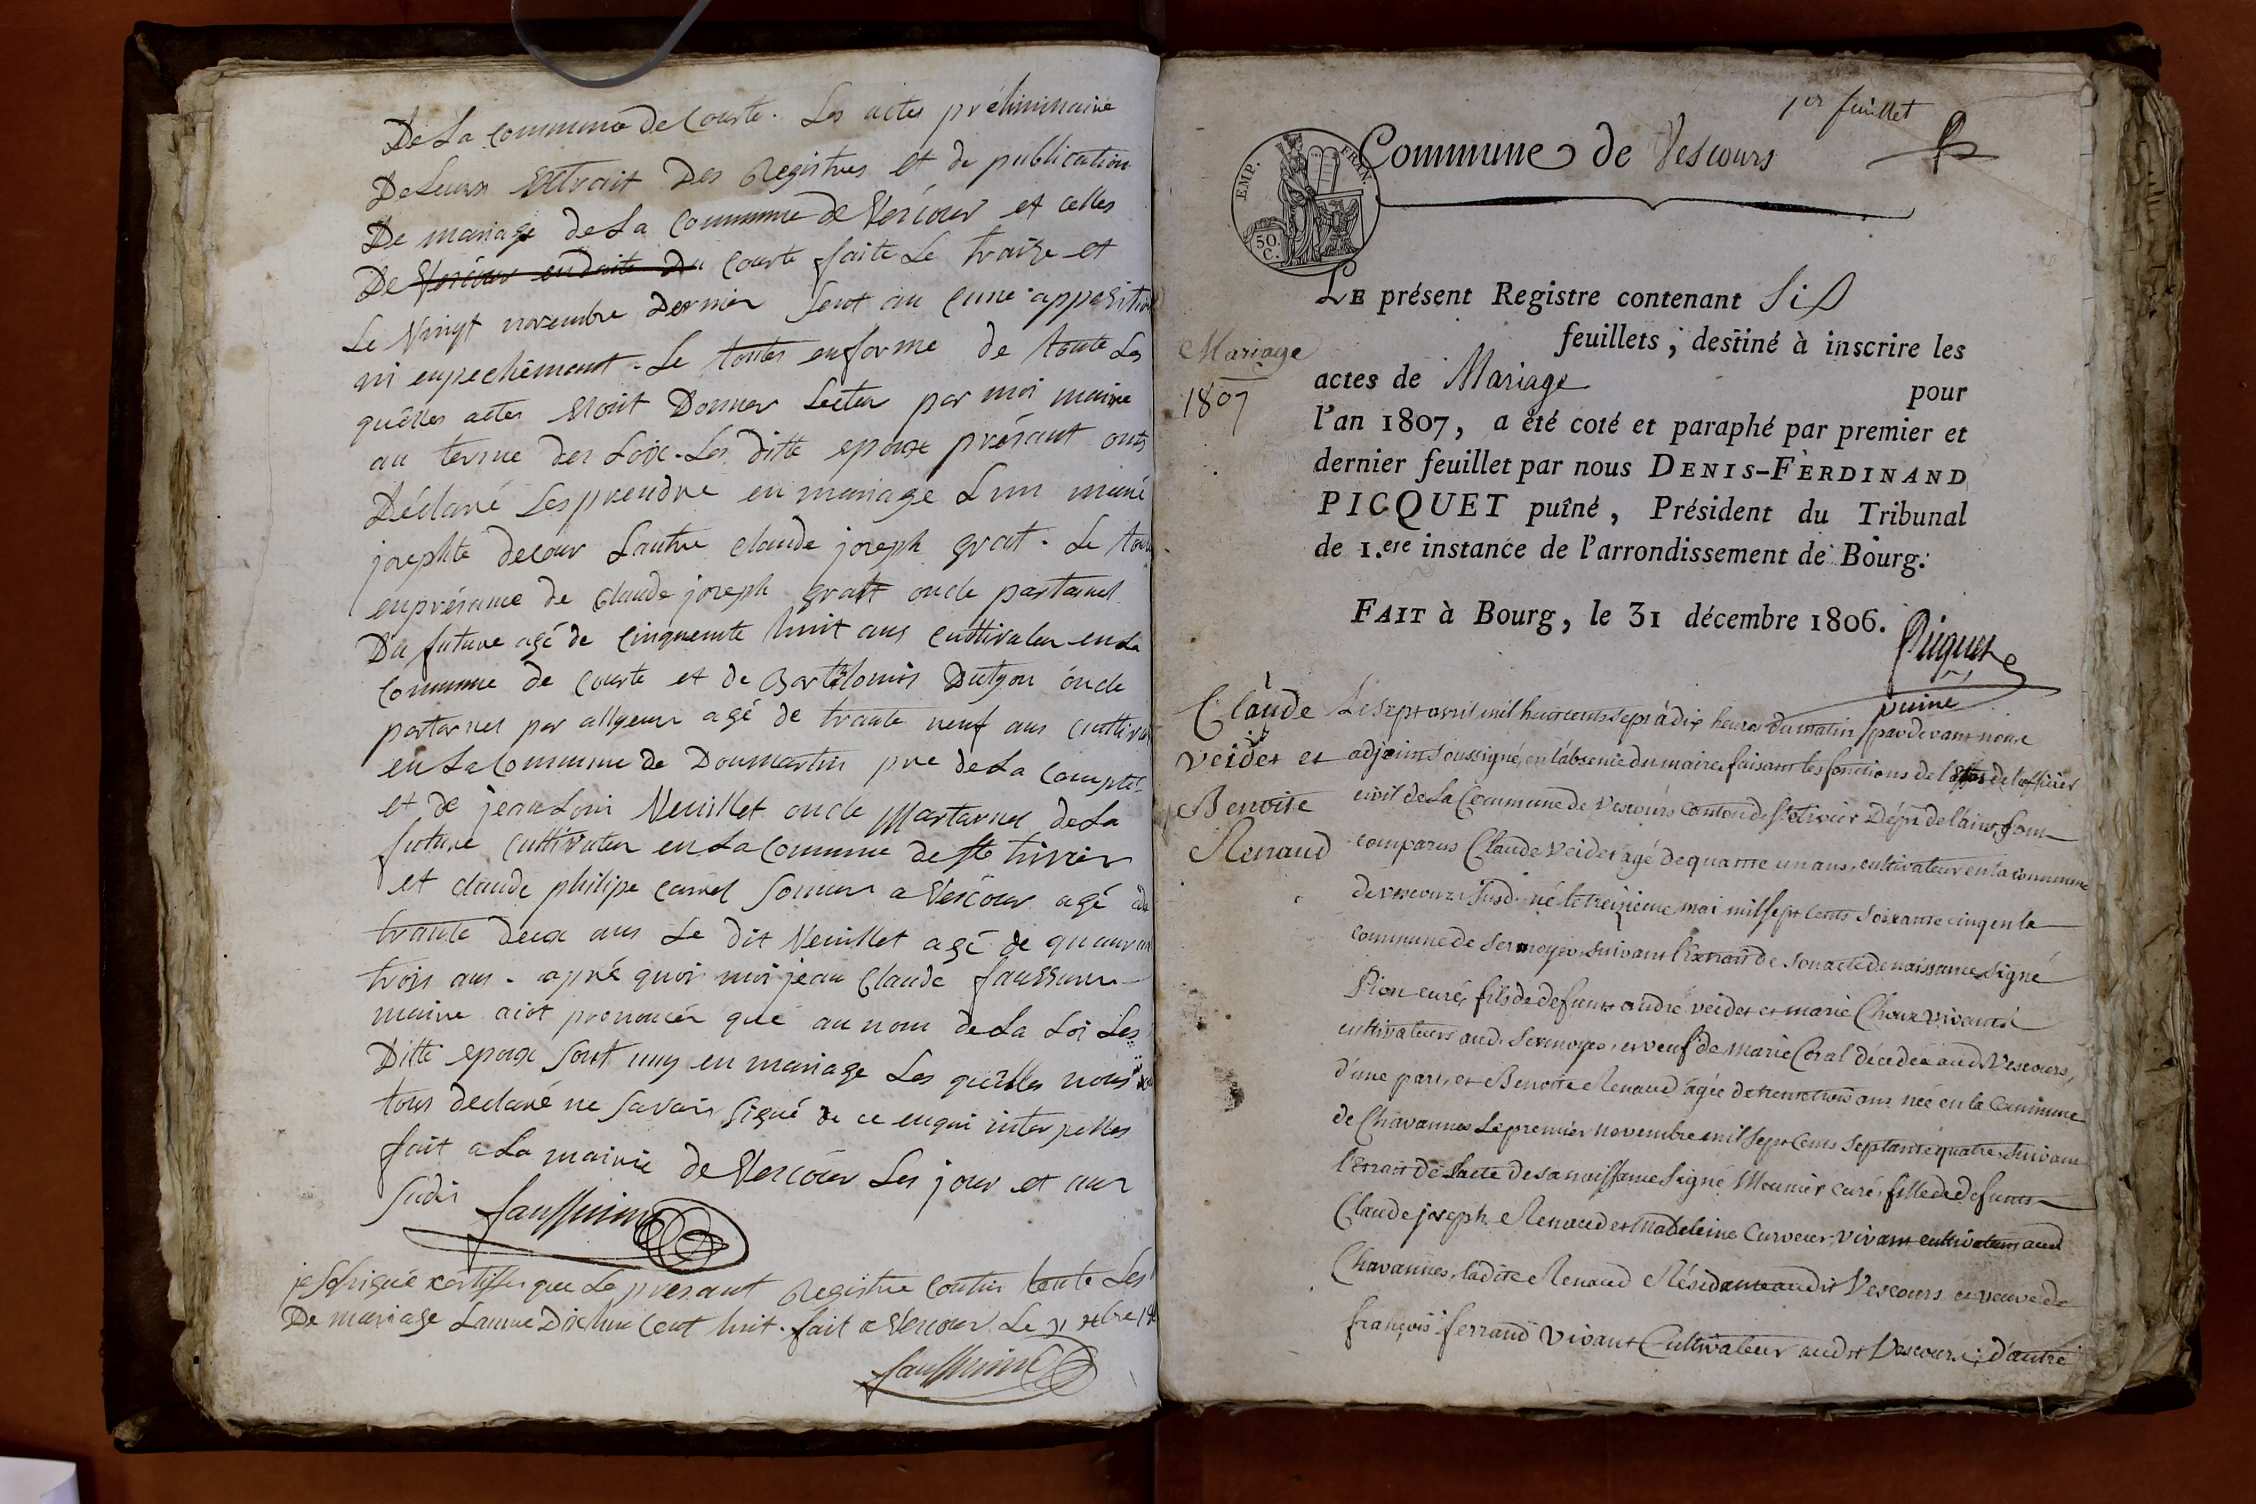 De La commune de Courte. Les actes préliminaire
De Leurs Extrait Des Registres et de publication
De mariage de La Commune de Vercour et celles
De Vercour en Du Courte faite Le traize et
Le Vingt novembre Dernier sont au cune apposition
ni enpechêment. Le toutes enforme de toute Les
quêlles actes etoit Donner Lecter par moi maire
au terme des Loix. Les ditte epoux présant onts
Déclaré Les prendre en mariage L'un marie
josephte decour Lautre claude joseph grat. Le tout
enprésance de Claude joseph gratt oncle partarnel
Du future agé de cinquente huit ans cultivateur en La
Commune de Courte et de Bartelomis Dutyou oncle
partarnel par allyeur agé de trante neuf ans cultivat
en La Commune de Domartin pre de La Compte
et de jean Loui Neuillet oncle Martarnel de La
future cultivateur en La Commune de St trivier
et claude philipe carrel a Vercour agé de
trante deux ans Le dit Neuillet agé de quaran
trois ans. apré quoi moi jean Claude faussurier
maire aiot prononcér que au nom de La Loi Les
Ditte epoux sont uny en mariage Les quelles nous
tous declaré ne savoir signé de ce enquis interpelles
fait a La mairie de Vercour Les jour et an
sudis
je certiffie que Le presant Registre Contin toute Les
De mariage Lanne Dix huit Cent huit. fait a Vercour Le 31
1er feuillet
EMP. FRAN.
50. C.
Commune de Vescours
Mariage
1807
LE présent Registre contenant Six
feuillets, destiné à inscrire les
actes de Mariage pour
l'an 1807, a été coté et paraphé par premier et
dernier feuillet par nous DENIS-FERDINAND
PICQUET puîné, Président du Tribunal
de 1.ere instance de l'arrondissement de Bourg.
FAIT à Bourg, le 31 décembre 1806.
Picquet
puiné
Claude
Veidet et
Benoite
Renaud
Le sept avril mil huit cents sept à dix heures du matin pardevant nous
adjoint soussigné, en l'absence du maire, faisant les fonctions de l'officier
civil de La Commune de Vescours canton de St trivier Dépt de l'ain, sont
comparus Claude Veidet agé de quarante un ans, cultivateur en la commune
de vescours susd. né le treizieme mai mil sept cents soixante cinq en la
commune de Sermoyer suivant l'Extrait de son acte de naissance signé
Pion curé, fils de defunts andré veidet et marie Choux vivants
cultivateurs aud. Sermoyer, et veuf de Marie Coral décédée aud. Vescours,
d'une part, et Benoite Renaud agée de trente trois ans née en la Commune
de Chavannes Le premier novembre mil sept Cents septante quatre suivant
l'Extrait de l'acte de sa naissance signé Meunier curé, fille de defunts
Claude joseph Renaud et Madeleine Curveur, vivant cultivateurs aud
Chavannes, ladite Renaud Résidante audit Vescours et veuve de
françois ferrand vivant Cultivateur audit Vescours; d'autre